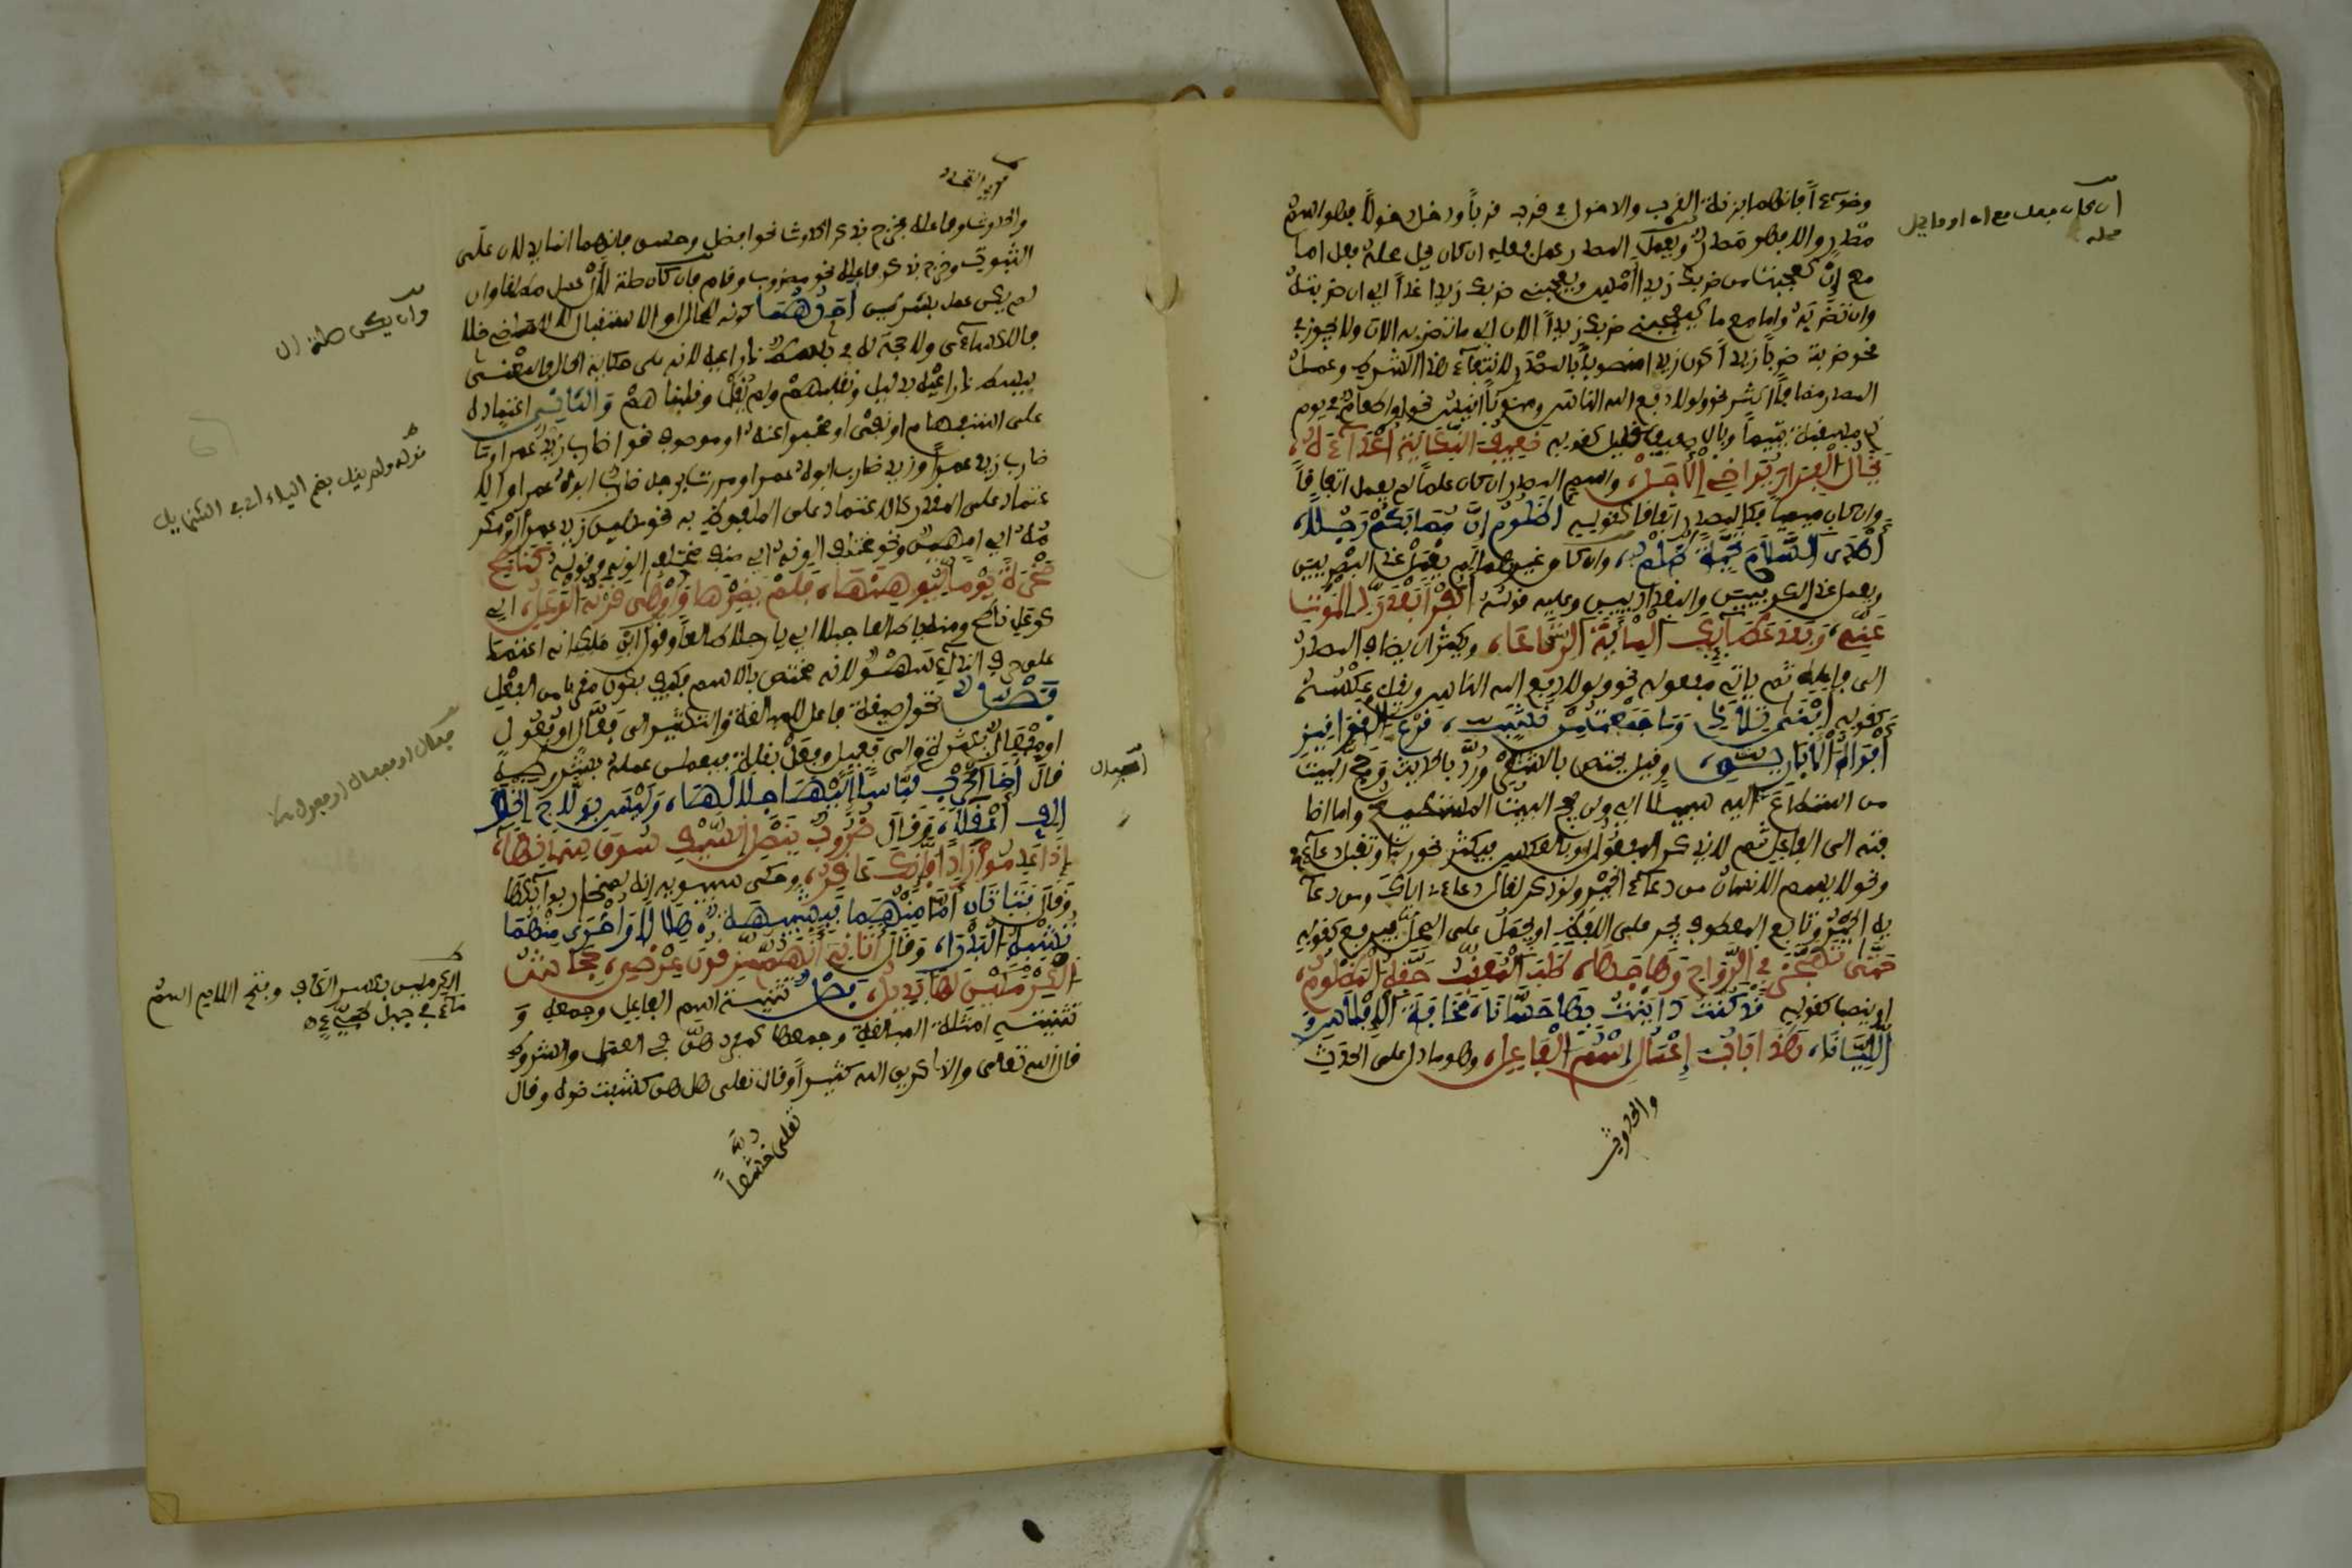 ان كان يحل محله فعل اما
وضوءاً فانهما بزنة القرب والدخول في قرب قرباً ودخل دخولاً فهو اسم
مصدر والا فهو مصدر ويعمل المصدر عمل فعله ان كان يحل محله فعل اما
مع ان كعجبت من ضربك زيدا امس ويعجبني ضربك زيدا غداً اي ان ضربته
وان تضربه واما مع ما كيعجبني ضربك زيداً الان اي ما تضربه الان ولا يجوز في
نحو ضربت ضرباً زيداً كون زيدا منصوباً بالمصدر لانتفاء هذا الشرط وعمل
المصدر مضافاً اكثر نحو ولولا دفع الله الناس ومنوناً اقيس نحو او اطعام في يوم
ذي مسغبة يتيماً وبال ضعيف قليل كقوله ضَعِيفُ النِّكَايَةِ أَعْدَاءَهُ
يَخَالُ الْفِرَارَ يُرَاخِي الْأَجَلْ، واسم المصدر ان كان علماً لم يعمل اتفاقاً
وان كان ميمياً فكالمصدر اتفاقا كقوله أَظَلُومُ إِنَّ مُصَابَكُمْ رَجُلًا،
أَهْدَى السَّلَامَ تَحِيَّةً ظُلْمُ، وان كان غيرهما لم يعمل عند البصريين
ويعمل عند الكوفيين والبغداديين وعليه قوله أَكُفْراً بَعْدَ رَدِّ الْمَوْتِ
عَنِّي، وَبَعْدَ عَطَائِكَ الْمِائَةَ الرِّتَاعَا، ويكثر ان يضاف المصدر
الى فاعله ثم ياتي مفعوله نحو ولولا دفع الله الناس ويقل عكسه
كقوله أَفْنَى تِلَادِي وَمَا جَمَّعْتُ مِنْ نَشَبٍ، قَرْعُ الْقَوَاقِيزِ
أَفْوَاهُ الْأَبَارِيقِ، وقيل يختص بالشعر ورد بالحديث وحج البيت
من استطاع اليه سبيلا اي وان يحج البيت المستطيع واما اضا
فته الى الفاعل ثم لا يذكر المفعول وبالعكس فيكثر نحو ربنا وتقبل دعاء
ونحو لا يسئم الانسان من دعاء الخير ولو ذكر لقال دعائي اياك ومن دعا
ئه الخير وتابع يجر على اللفظ او يحمل على المحل فيرفع كقوله
حَتَّى تَهَجَّرَ فِي الرَّوَاحِ وَهَاجَهَا، طَلَبَ الْمُعَقِّبِ حَقَّهُ الْمَظْلُومُ،
او ينصب كقوله قَدْ كُنْتُ دَايَنْتُ بِهَا حَسَّانَا، مَخَافَةَ الْإِفْلَاسِ وَ
اللَّيَّانَا، هَذَا بَابُ إِعْمَالِ اسْمِ الْفَاعِلِ، وهو ما دل على الحدث
والحدوث
والحدوث وفاعله فخرج بذكر الحدوث نحو افضل وحسن فانهما انما يدلان على
الثبوت وخرج بذكر فاعله نحو مضروب وقام فان كان صلة لال عمل مطلقا وان
لم يكن عمل بشرطين أَحَدُهُمَا كونه للحال او الاستقبال لا الماضي خلافا
للكساءي ولا حجة له في باسط ذراعيه لانه على حكاية الحال والمعنى
يبسط ذراعيه بدليل ونقلبهم ولم يقل وقلبناهم وَالثَّانِي اعتماده
على استفهام او نفي او مخبر عنه او موصوف نحو اضارب زيد عمرا وما
ضارب زيد عمراً وزيد ضارب ابوه عمرا ومررت برجل ضارب ابوه عمرا والا
عتماد على المقدر كالاعتماد على الملفوظ به نحو مهين زيد عمرا ام مكر
مه اي امهين ونحو مختلف الوانه اي صنف مختلف الوانه وقوله كَنَاطِحِ
صَخْرَةً يَوْماً لِيُوهِنَهَا، فَلَمْ يَضِرْهَا وَأَوْهَى قَرْنَهُ الْوَعِلُ، اي
كوعل ناطح ومنه يا طالعا جبلا اي يا رجلا طالعاً وقول ابن ملك انه اعتمد
على حرف النداء سهو لانه مختص بالاسم فكيف يكون مقربا من الفعل
فَصْل تحول صيغة فاعل للمبالغة والتكثير الى فعال او فعول
او مفعال بكثرة والى فعيل وفعل بقلة فيعمل عمله بشروطه
قال أَخَا الْحَرْبِ لَبَّاساً إِلَيْهَا جِلَالَهَا، وَلَيْسَ بِوَلَّاجِ الْخَوَا
لِفِ أَعْقَلَا، وَقَالَ ضَرُوبٌ بِنَصْلِ السَّيْفِ سُوقَ سِمَانِهَا،
إِذَا عَدِمُوا زَاداً فَإِنَّكَ عَاقِرُ، وحكى سيبويه انه لمنحار بوائكها
وَقَالَ فَتَاتَانِ أَمَّا مِنْهُمَا فَشَبِيهَةٌ، هِلَالاً وَأُخْرَى مِنْهُمَا
تُشْبِهُ الْبَدْرَا، وَقَالَ أَتَانِي أَنَّهُمْ مَزِقُونَ عِرْضِي، جِحَاشُ
الْكِرْمِلَيْنِ لَهَا فَدِيدُ، فَصْل تثنية اسم الفاعل وجمعه و
تثنية امثلة المبالغة وجمعها كمفردهن في العمل والشروط
قال الله تعالى والذاكرين الله كثيراً وقال تعلى هل هن كشفت ضره وقال
تعلى خشعاً
وان لم يكن صلة ال
فعال او مفعال او فعول
الكرملين بكسر الكاف وفتح اللام اسم
ماء في جبل طيء